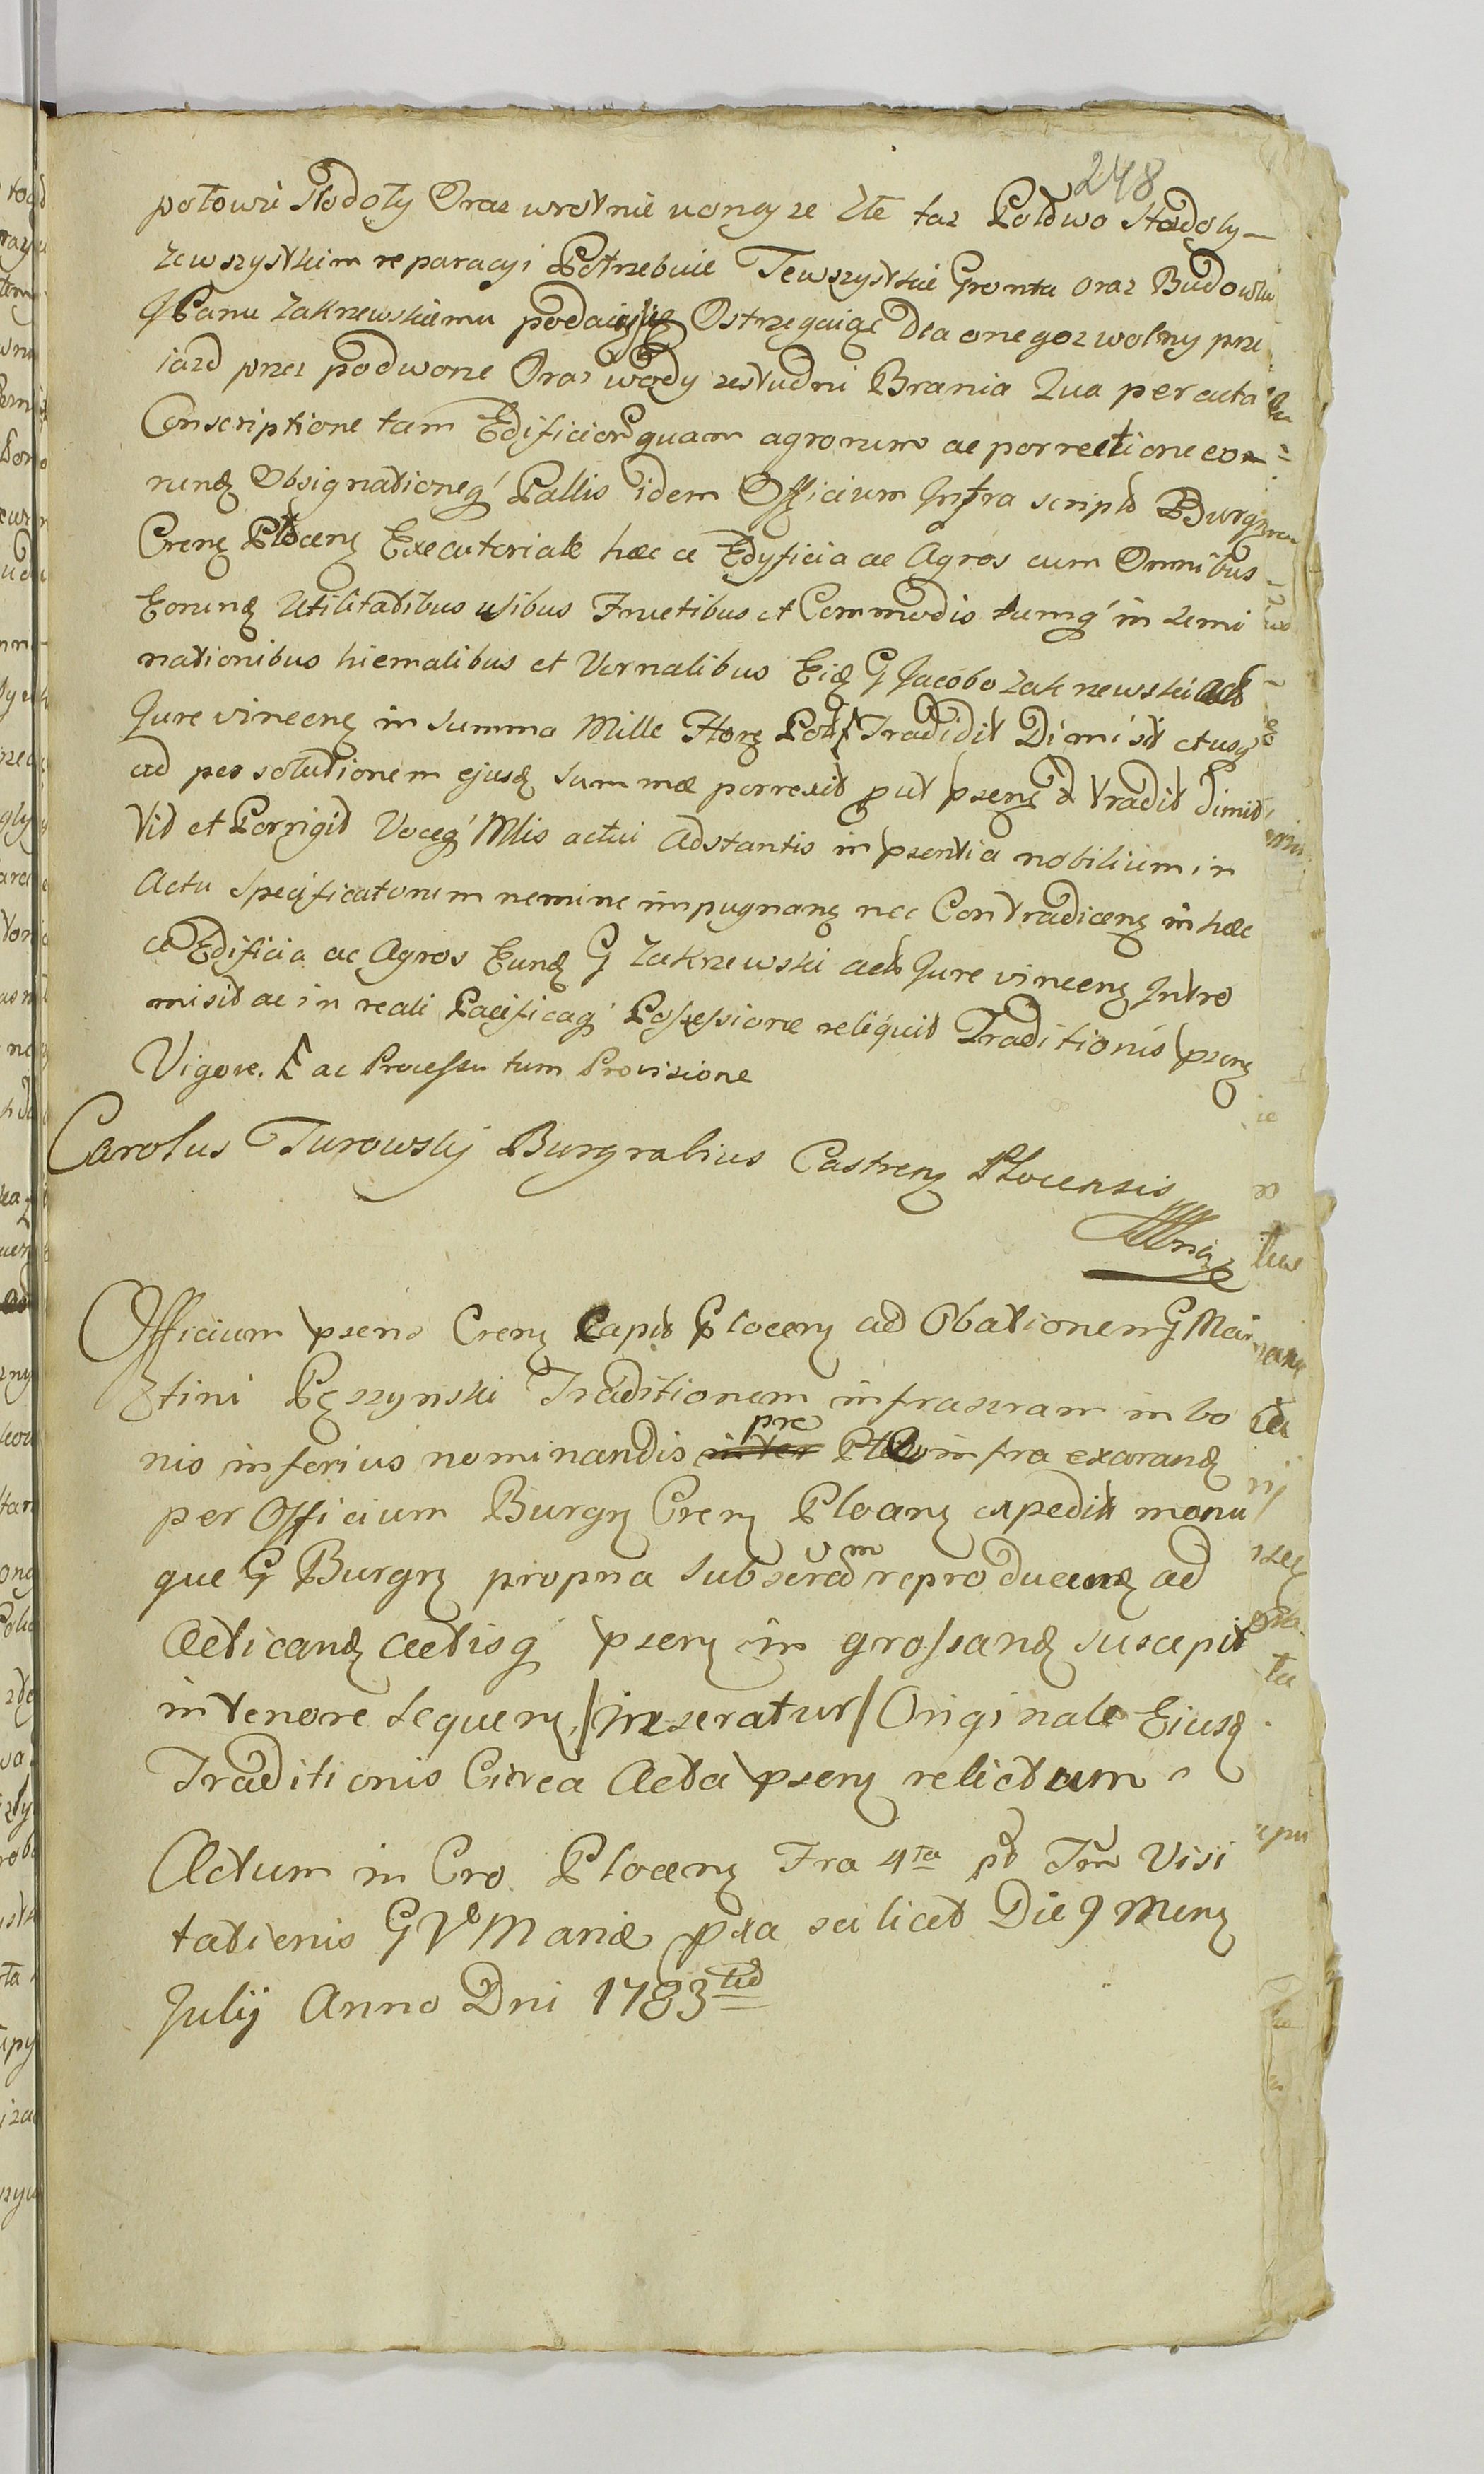 248
połowie stodoły Oraz wrotnie u oney ze Zte taz Połowa stodoły
zewszystkim reparacyi Potrzebuie Tewszystkie Gronta oraz Budowlu
JPanu Zakrzewskiemu podaiąc Ostrzegaiąc Dla onegoz wolny prze
iazd przez podworze Oraz wody zestudni Brania Qua peracta
Conscriptione tam Edificior quam agrorum ac porrectione eo
rund Obsignationeq Pallis idem Officium Infra script Burgrae
Crenz Plocenz Executoriale hæc ce Edyficia ac Agros cum Omnibus
Eorund Utilitatibus usibus Fructibus et Commodis tumq in Semi
nationibus hiemalibus et Vernalibus Eid G Jacobo Zakrzewski act
Jure vincenz in Summa Mille Florz Pol Tradidit Dimisit et usq
ad persolutionem ejusd Summæ porrexit put psenz tradit dimit
tit et Porrigit Voceq Mlis actui Adstantis in psentia nobilium in
Actu Specificatorum nemine impugnanz nec Contradicenz in hæc
ce Edificia ac Agros Eund G Zakrzewski act Jure vincenz Intro
misit ac in reali Pacificaq Possessione reliquit Traditionis psenz
Vigore. ac Processu tum Provisione
Carolus Turowskij Burgrabius Castrenz Plocensis
Officium psens Crenz Capit Plocenz ad Obationem G Mar
tini Pęszynski Traditionem infrascram in bo
nis inferius nominandis inter pre infra exarand
per Officium Burgrz Crenz Plocenz expedit manu
que G Burgrz propria Subscram reproducend ad
Acticand Actisq psenz in grossand suscepit
in tenore Sequenz /inseratur/ Originale Ejusd
Traditionis Circa Acta psenz relictum
Actum in Cro Plocenz Fra 4ta pt Fm Visi
tationis G V Mariæ pxa scilicet Die 9 Menz
Julij Anno Dni 1783tio